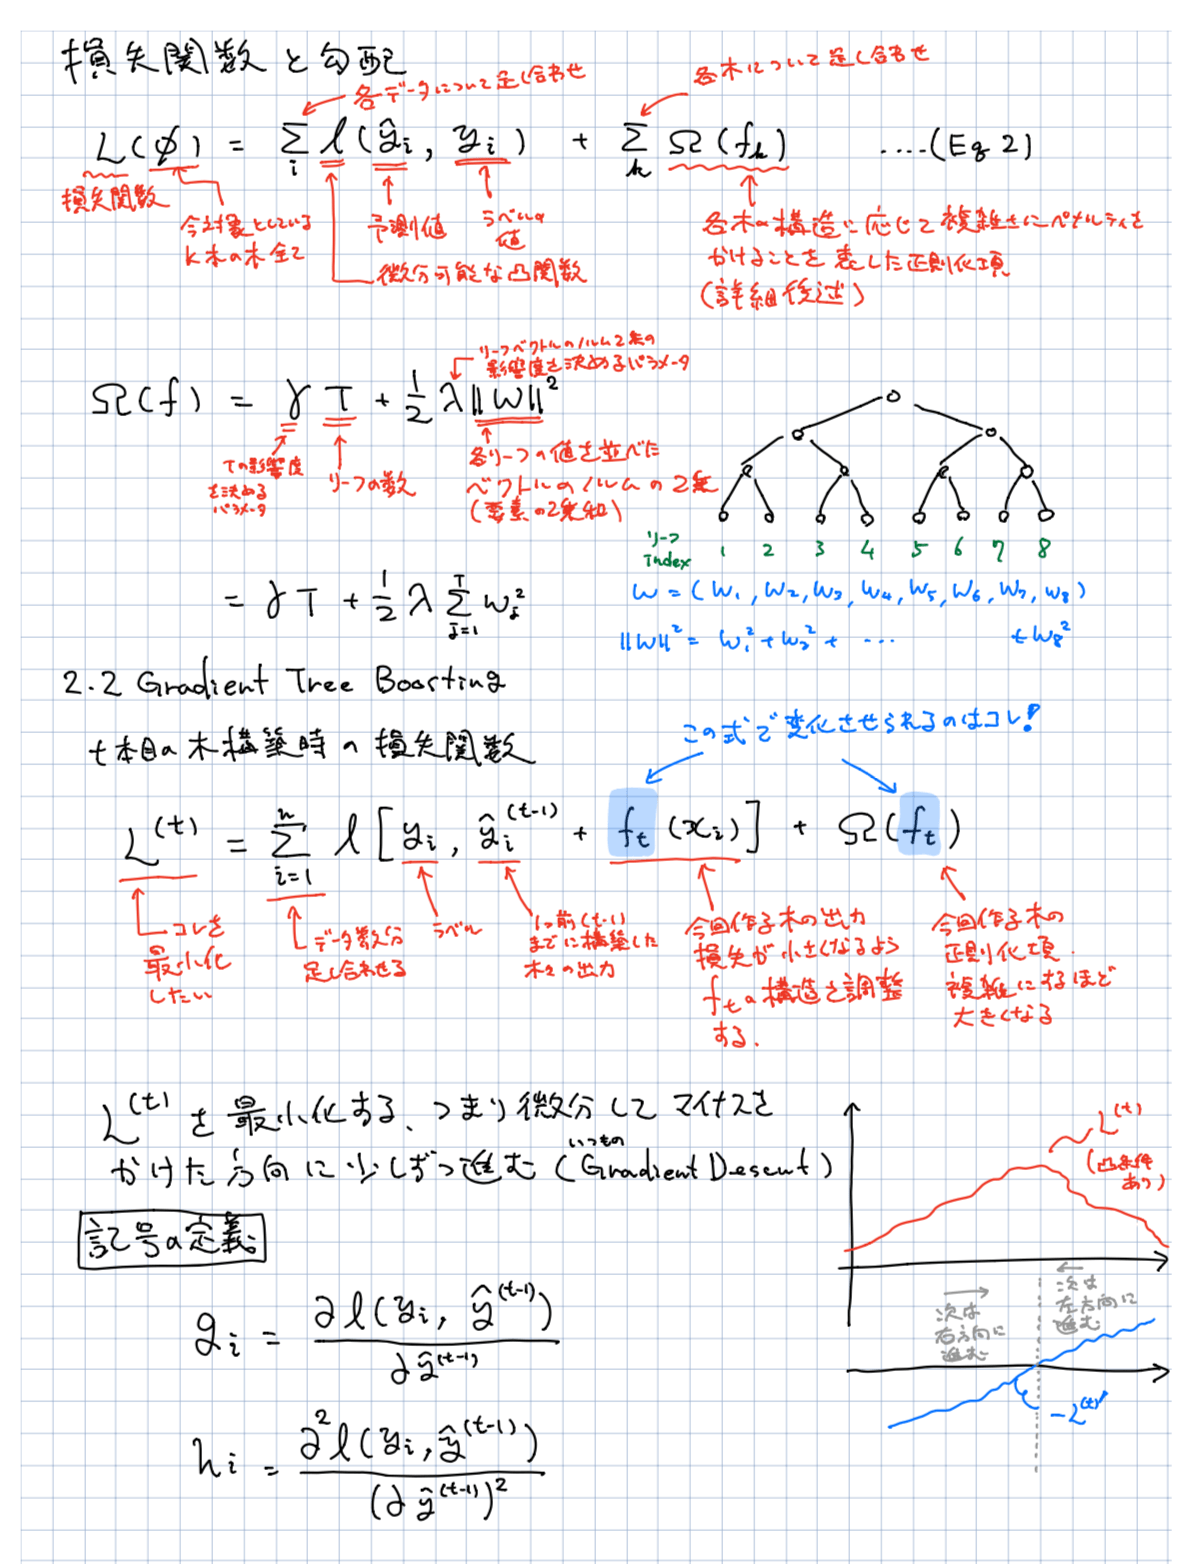 損失関数と勾配
各データについて足し合わせ
各木について足し合わせ
L(φ) = Σ_i l(ŷ_i, y_i) + Σ_k Ω(f_k) ....(Eq 2)
損失関数
今対象としている
K本の木全て
予測値
ラベルの
値
微分可能な凸関数
各木の構造に応じて複雑さにペナルティを
かけることを表した正則化項
(詳細後述)
リーフベクトルのノルム2乗の
影響度を決めるパラメータ
Ω(f) = γT + 1/2 λ||w||^2
Tの影響度
を決める
パラメータ
リーフの数
各リーフの値を並べた
ベクトルのノルムの2乗
(要素の2乗和)
リーフ
Index 1 2 3 4 5 6 7 8
= γT + 1/2 λ Σ_{j=1}^{T} w_j^2
w = (w_1, w_2, w_3, w_4, w_5, w_6, w_7, w_8)
||w||^2 = w_1^2 + w_2^2 + ... + w_8^2
2.2 Gradient Tree Boosting
この式で変化させられるのはコレ!
t本目の木構築時の損失関数
L^(t) = Σ_{i=1}^{n} l[y_i, ŷ_i^(t-1) + f_t(x_i)] + Ω(f_t)
コレを
最小化
したい
データ数分
足し合わせる
ラベル
1つ前(t-1)
までに構築した
木々の出力
今回作る木の出力
損失が小さくなるよう
f_tの構造を調整
する.
今回作る木の
正則化項.
複雑にするほど
大きくなる
L^(t)を最小化する、つまり微分してマイナスを
いつもの
かけた方向に少しずつ進む(Gradient Descent)
L^(t)
(凸条件
あり)
記号の定義
次は
右方向に
進む
次は
左方向に
進む
-L^(t)'
g_i = ∂l(y_i, ŷ^(t-1)) / ∂ŷ^(t-1)
h_i = ∂^2 l(y_i, ŷ^(t-1)) / (∂ŷ^(t-1))^2